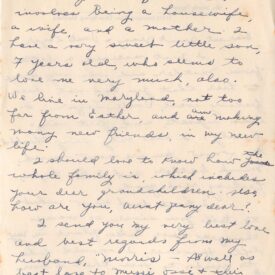 involves being a housewife,
a wife, and a mother. I
have a very sweet little son,
7 years old, who seems to
love me very much, also.
We live in Maryland, not too
far from Esther, and am making
many new friends, in my new
life.
I should love to know how the
whole family is, which includes
your dear grandchildren. Also,
how are you, aunt Jeany dear?
I send you my very best love
and best regards from my
husband, "Morris" - As well as
best love to